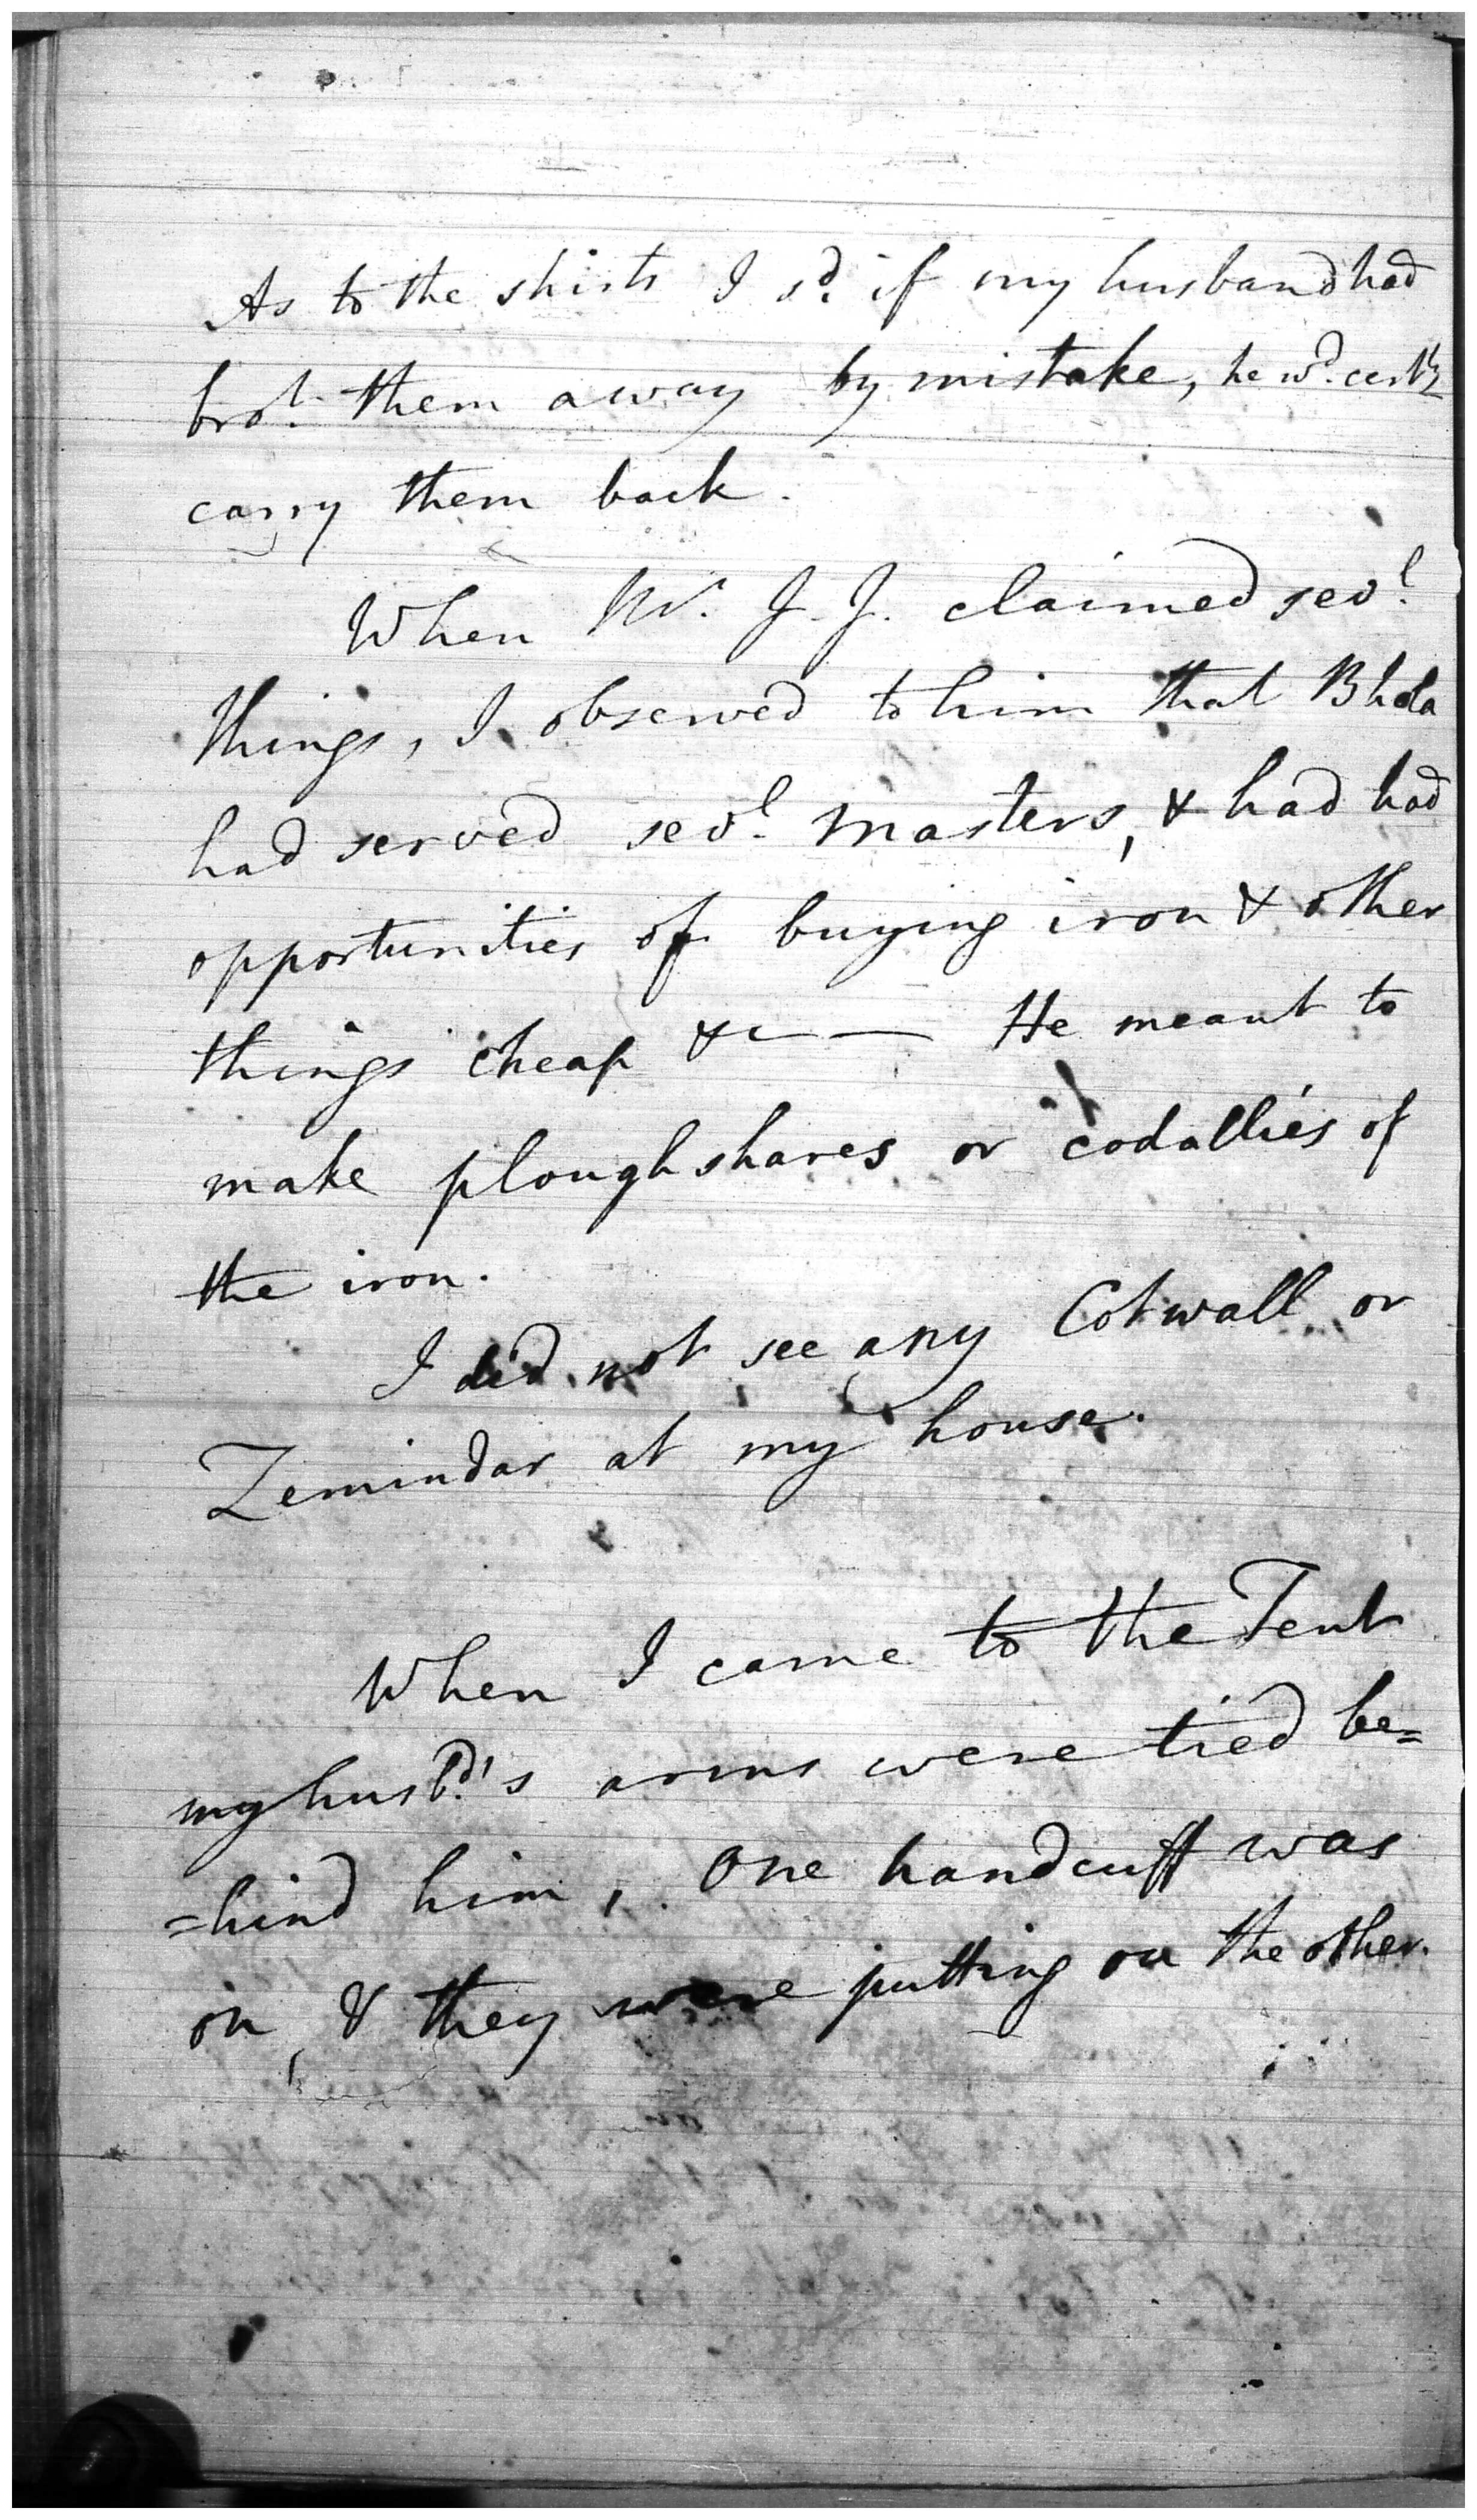 As to the shirts I sd. if my husband had
brot. them away by mistake, he wd. certly
carry them back.
When Mr. J. J. claimed sevl.
things, I observed to him that Bhola
had served sevl. masters, & had had
opportunities of buying iron & other
things cheap &c — He meant to
make ploughshares or codallies of
the iron.
I did not see any Cotwall or
Zemindar at my house.
When I came to the Tent
my husbd.'s arms were tied be=
=hind him, One handcuff was
on, & they were putting on the other.